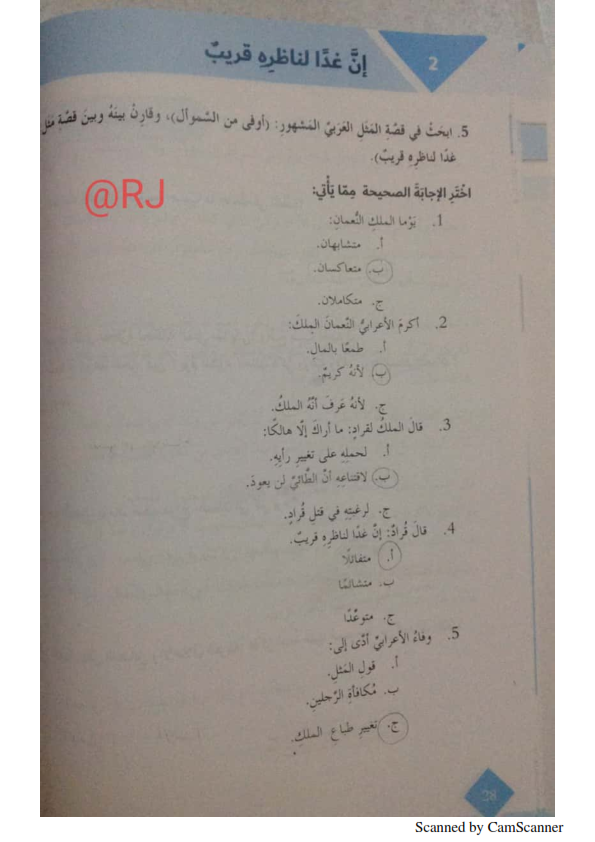 2
إنَّ غدًا لناظرِهِ قريبٌ
5. ابحَثْ في قصّةِ المَثَلِ العَرَبيِّ المَشهورِ: (أوفى من السَّموأل)، وقارِنْ بينَهُ وبينَ قصّةِ مَثَلِ
غدًا لناظرِهِ قريبٌ).
@RJ
اخْتَرِ الإجابَةَ الصحيحة مِمّا يَأْتي:
1. يَوْما الملكِ النُّعمانِ:
أ. متشابهان.
ب. متعاكسان.
ج. متكاملان.
2. أكرمَ الأعرابيُّ النُّعمانَ المَلِكَ:
أ. طمعًا بالمالِ.
ب. لأنهُ كريمٌ.
ج. لأنهُ عَرفَ أنَّهُ الملكُ.
3. قالَ الملكُ لقرادٍ: ما أراكَ إلّا هالكًا:
أ. لحملِهِ على تغييرِ رأيِهِ.
ب. لاقتناعِهِ أنَّ الطَّائيَّ لن يعودَ.
ج. لرغبتِهِ في قتلِ قُرادٍ.
4. قالَ قُرادٌ: إنَّ غدًا لناظرِهِ قريبٌ.
أ. متفائلًا
ب. متشائمًا
ج. متوعّدًا
5. وفاءُ الأعرابيِّ أدّى إلى:
أ. قولِ المَثلِ.
ب. مُكافأةِ الرَّجلينِ.
ج. تغييرِ طباعِ الملكِ.
28
Scanned by CamScanner